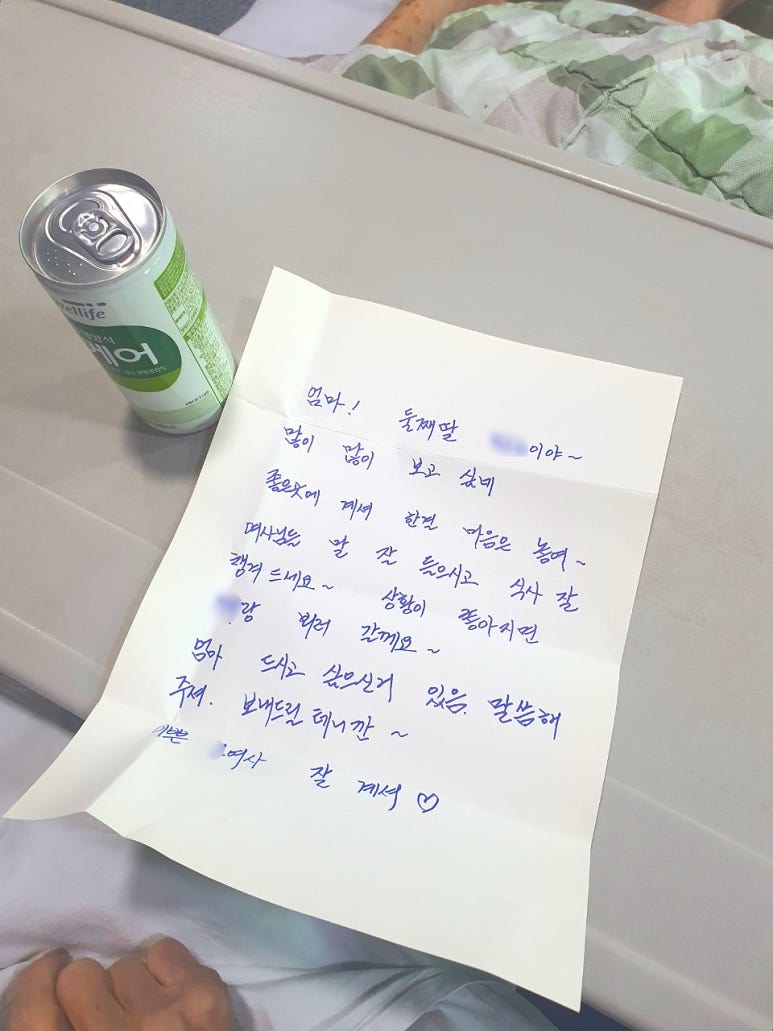 Wellife
케어
엄마! 둘째딸 이야~
많이 많이 보고 싶네
좋은곳에 계셔 한결 마음은 놓여~
여사님들 말 잘 들으시고 식사 잘
챙겨 드세요~ 상황이 좋아지면
랑 뵈러 갈께요~
엄마 드시고 싶으신거 있음. 말씀해
주져. 보내드릴 테니깐~
이쁜 여사 잘 계셔 ♡